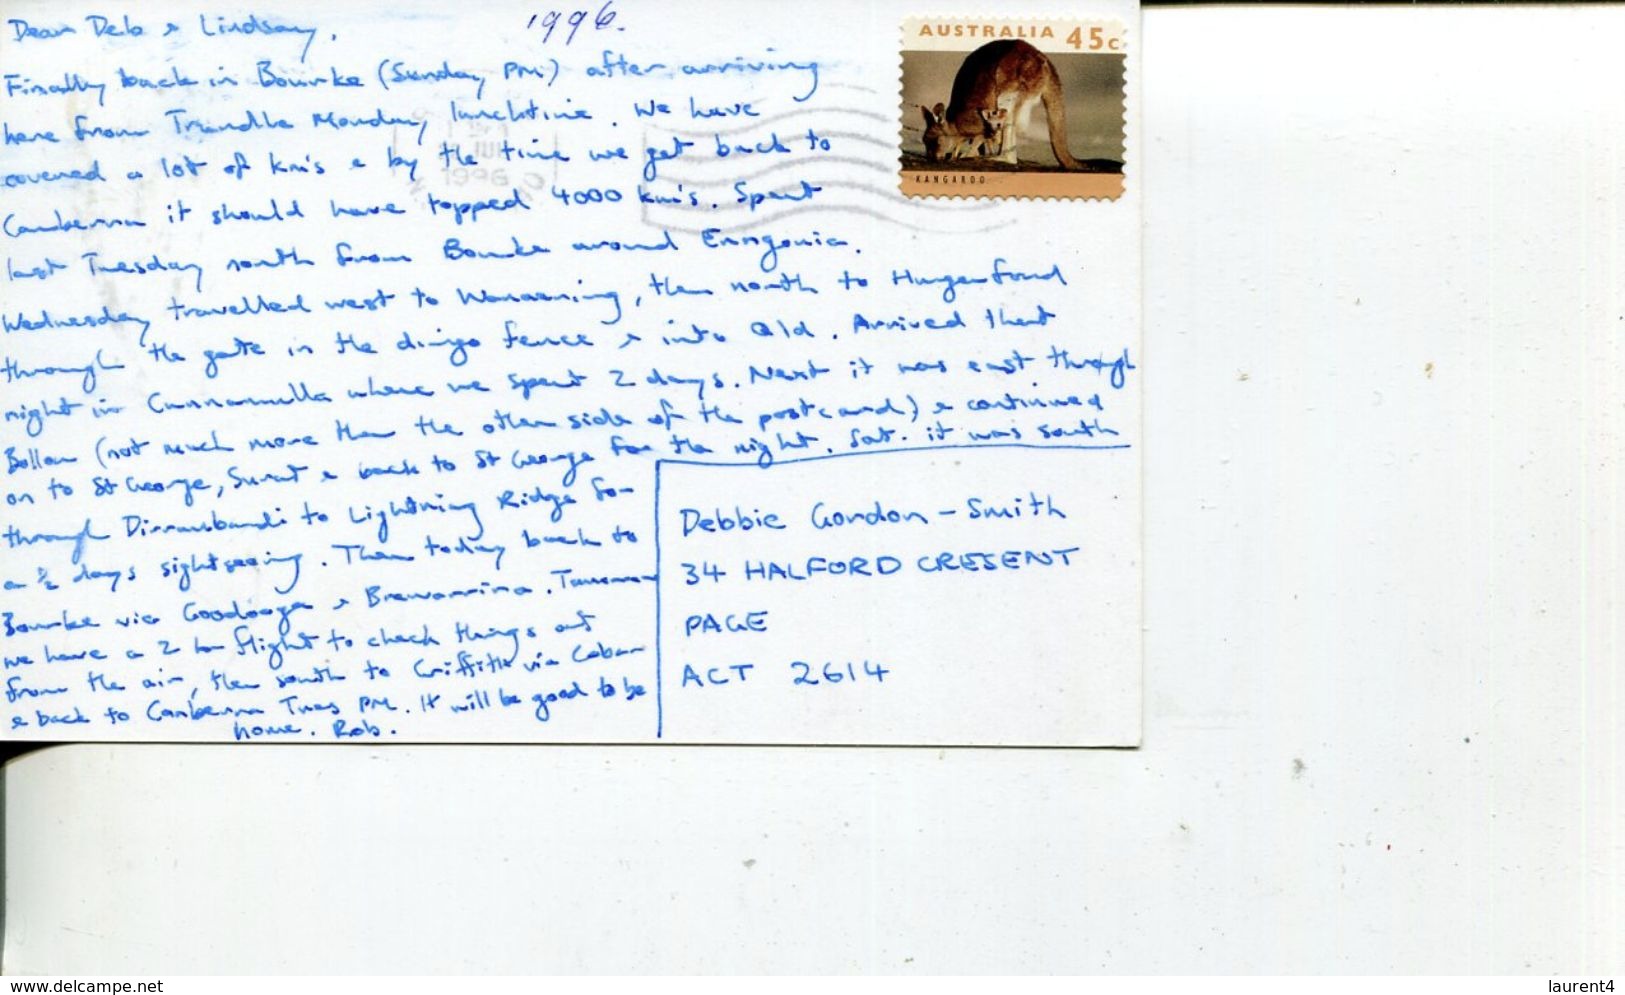 Dear Deb & Lindsay,
1996.
AUSTRALIA 45c
KANGAROO
Finally back in Bourke (Sunday PM) after arriving
here from Trundle Monday lunchtime. We have
covered a lot of km's & by the time we get back to
Canberra it should have topped 4000 km's. Spent
last Tuesday north from Bourke around Enngonia.
Wednesday travelled west to Wanaaring, then north to Hungerford
through the gate in the dingo fence & into Qld. Arrived that
night in Cunnamulla where we spent 2 days. Next it was east through
Bollon (not much more than the other side of the postcard) & continued
on to St George, Surat & back to St George for the night. Sat. it was south
through Dirranbandi to Lightning Ridge for
a ½ days sightseeing. Then today back to
Bourke via Goodooga & Brewarrina. Tomorrow
we have a 2 hr flight to check things out
from the air, then south to Griffith via Cobar
& back to Canberra Tues PM. It will be good to be
home. Rob.
Debbie Gordon-Smith
34 HALFORD CRESENT
PAGE
ACT 2614
1996
www.delcampe.net
laurent4